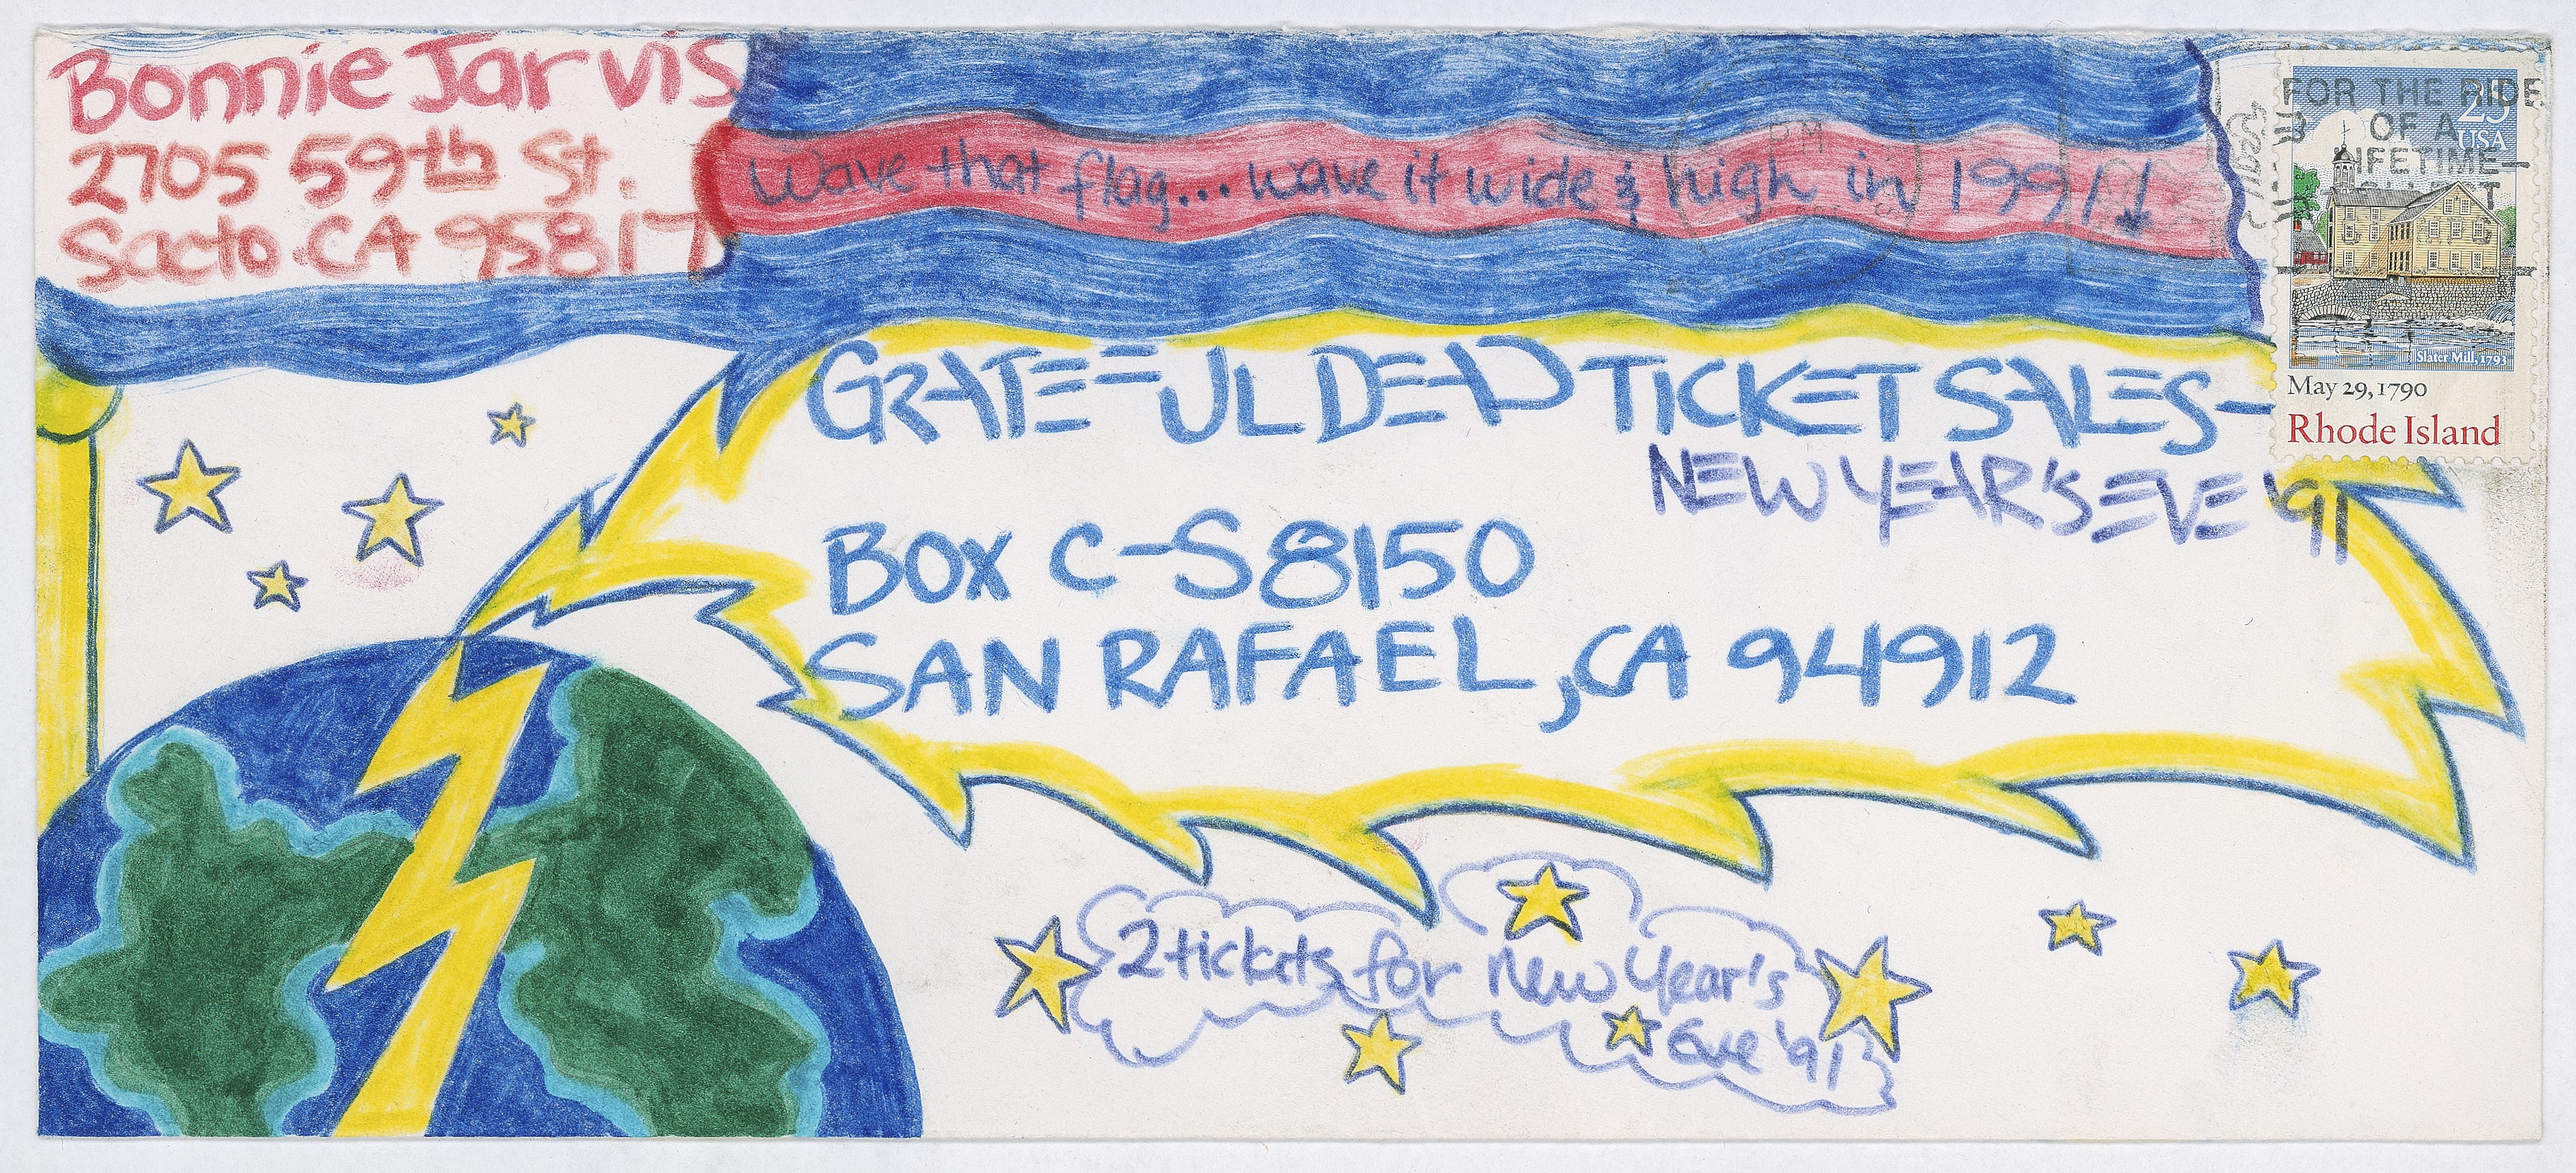 Bonnie Jarvis
2705 59th St.
Sacto. CA 95817
Wave that flag... wave it wide & high in 1991!
PM
FOR THE RIDE
OF A
LIFETIME—
25
USA
Slater Mill, 1793
May 29, 1790
Rhode Island
GRATEFUL DEAD TICKET SALES-
NEW YEAR'S EVE '91
BOX C-S8150
SAN RAFAEL, CA 94912
2 tickets for New Year's
Eve '91